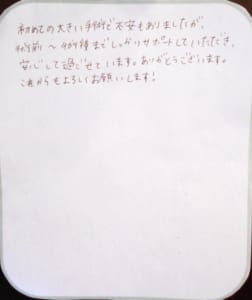 初めての大きい手術で不安もありましたが、
術前〜術後までしっかりサポートしていただき、
安心して過ごせています。ありがとうございます。
これからもよろしくお願いします!